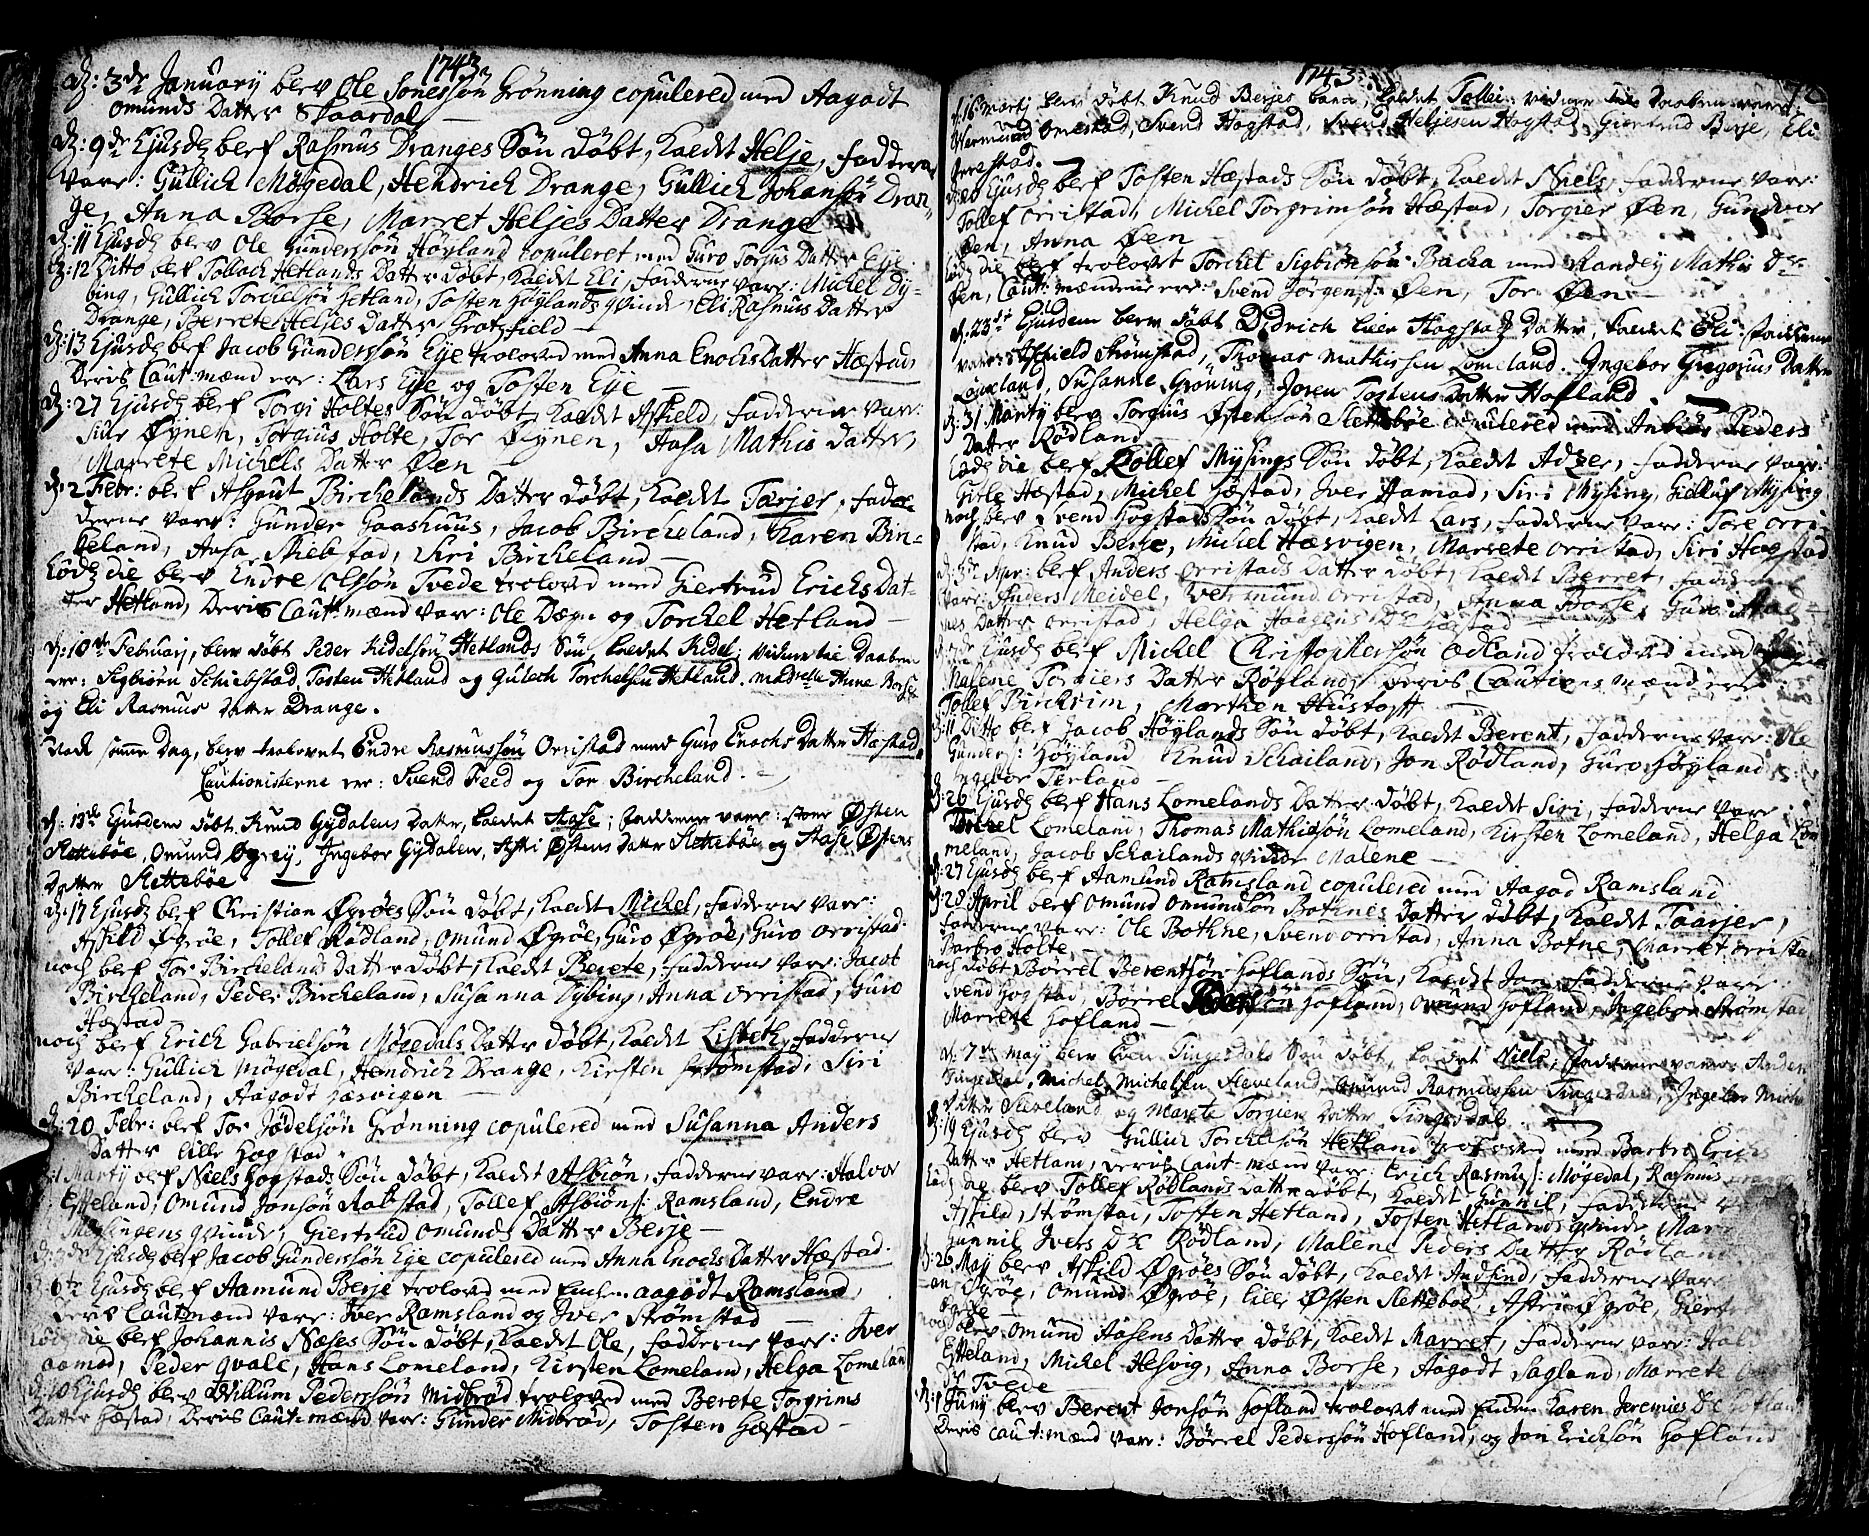 1743
d: 3de January berv Ole Jonessøn Grønning copulered med Aagodt
omunds Datter Skaardal
d: 9de Ejusdς berf Rasmus Dranges Søn døbt, kaldt Helje, fadderne
Vare: Gullich Møgedal, Hendrich Drange, Gullich Johansøn Dran-
ge, Anna Borse, Marret Heljes Datter Drange
d: 11 Ejusdς berv Ole Gunderssøn Høyland copuleret med Guro Torjus Datter Eye.
d: 12 Ditto berf Tollach Hetlands Datter døbt, kaldt Eli, fadderne vare: Michel Dy-
bing, Gullich Torchelsøn Hetland, Tosten Høylands qvinde, Eli Rasmus Datter
Drange, Berrete Heljes Datter Grotsfield
d: 13 Ejusdς berf Jacob Gunderssøn Eye trolovd med Anna Enochs Datter Hæstad
Deris Caut: mænd ere: Lars Eye og Tosten Eye
d: 27 Ejusdς berf Torgi Holtes Søn døbt, kaldt Askield, fadderne var:
Siur Øynen, Torgius Holte, Tor Øynen, Aasa Mathis Datter,
Marrete Michels Datter Øen
d. 2 Febr: berf Asgaut Birchelands Datter døbt, kaldt Tarjer, fad-
derne vare: Gunder Gaashuus, Jacob Bircheland, Karen Bir-
keland, Aasa Skiebstad, Siri Bircheland
Eodς die berv Endre Olssøn Tvede trolovd med Giertrud Erichs Dat-
ter Hetland, Deris Caut: mænd vare: Ole Dægn og Torchel Hetland
d: 10de Februarj, berv døbt Peder Kidelsøn Hetlands Søn kaldet Kidel; vidnerne til Daaben
ere: Sigbiørn Schiebstad, Tosten Hetland og Gulech Torchelsen Hetland. Madselle Anne Borse
og Eli Rasmus Datter Drange.
Udi samme Dag, berv trolovet Endre Rasmussøn Orristad med Guro Enochs Datter Hæstad,
Cautionisterne ere: Svend Feed og Tor Bircheland.
d: 13de Ejusdem døbt Knud Gydalens Datter, kaldet Aase; fadderne vare: store Østen
Slettebøe, Omund Øgrey, Ingebor Gydalen, Astri Østens Datter Slettebøe og Aase Østens
Datter Slettebøe
d: 17 Ejusdς berf Christian Øgrøes Søn døbt, kaldt Michel, fadderne vare:
Askild Øgrøe, Tollef Rødland, Omund Øgrøe, Guro Øgrøe, Guro Orristad.
noch berf Tor Birchelands Datter døbt, kaldt Berete, fadderne vare: Jacob
Bircheland, Peder Bircheland, Susanna Dybing, Anna Orristad, Guro
Hæstad
noch berf Erich Gabrielsøn Møgedals Datter døbt, kaldt Lisbeth, fadderne
vare: Gullich Møgedal, Hendrich Drange, Kirsten Strømstad, Siri
Bircheland, Aagodt Hæsvigen
d: 20 Febr: berf Tor Jødelsøn Grønning copulered med Susanna Anders
Datter lille Hogstad.
d: 1 Marty berf Niels Hogstads Søn døbt, kaldt Asbiøn, fadderne vare: Halvor
Eftteland, Omund Jonsøn Ralstad, Tollef Asbiøns: Ramsland, Endre
Mysingens qvinde, Giertrud Omunds Datter Berje
d: 5de Ejusdς berf Jacob Gunderssøn Eye copulered med Anna Enochs Datter Hæstad.
d: 6te Ejusdς berf Aamund Berje trolovd med Enchen Aagodt Ramsland,
Deris Cautmænd vare: Iver Ramsland og Iver Strømstad
Eodς die berf Johannis Næses Søn døbt, kaldt Ole, fadderne vare: Iver
Aamod, Peder Qvale, Hans Lomeland, Kirsten Lomeland, Helga Lomeland
d: 10 Ejusdς berv Willum Pederssøn Midbrød trolovd med Berete Torgrims
Datter Hæstad, Deris Caut: mænd vare: Gunder Midbrød, Tosten Hæstad
1743.
d. 16 Martj berv døbt Knud Berjes barn, kaldet Tollei; vidnerne til Daaben vare:
Vermund Omestad, Svend Hogstad, Svend Heljesen Hogstad, Giertrud Berje, Eli
Orrestad.
d: 20 Ejusdς berf Tosten Hæstads Søn døbt, kaldt Niels, fadderne vare:
Tollef Orristad, Michel Torgrimsøn Hæstad, Torgier Øen, Gundvor
Øen, Anna Øen
Eodς die berf trolovet Torchel Sigbiønsøn Backa med Randey Mathis Dr
Øen, Caut: mændene ere: Svend Jørgens: Øen, Tor Øen
d. 23de Ejusdem berv døbt Didrich Hogstads Datter, kaldet Eli; fadderne
vare: Askield Strømstad, Thomas Mathissen Lomeland. Ingebor Gregorius Datter
Lomeland, Susanne Grøning, Joren Tostens Datter Hofland.
d: 31 Marty berv Torgius Østensøn Slettebøe copulered med Anbiør Peders
Datter Rødland
Eodς die berf Rollef Mysings Søn døbt, kaldt Adzer, fadderne vare:
Girle Hæstad, Michel Hæstad, Iver Aamod, Siri Mysing, Giellui Mysing
noch berv Svend Hogstads Søn døbt, kaldt Lars, fadderne vare: Tore Orri-
stad, Knud Berje, Michel Hæsvigen, Marrete Orristad, Siri Hogstad
d: 5te Apr: berf Anders Orristads Datter døbt, kaldt Berret, fadderne
vare: Anders Meidel, Vermund Orristad, Anna Borse, Guro
Datter Orristad, Helga Haagens Dr Hæstad
Ejusdς berf Michel Christophersøn Ødland trolovd med
Malene Torgiers Datter Røgland, Deris Cautions mænd ere
Tollef Birchrim, Morthen Hustoft
d: 11 Ditto berf Jacob Høylands Søn døbt, kaldt Berent, fadderne vare: Ole
Gunders: Høyland, Knud Schailand, Jon Rødland, Guro Høyland
Ingebor Terland
d: 26 Ejusdς berf Hans Lomelands Datter døbt, kaldt Siri, fadderne vare
Lomeland, Thomas Mathissøn Lomeland, Kirsten Lomeland, Helga Lom-
meland, Jacob Schailands qvinde Malene
d: 27 Ejusdς berf Aamund Ramsland copulered med Aagod Ramsland
d: 28 April berf Omund Omundsøn Bothnes Datter døbt, kaldt Taarjer,
fadderne vare: Ole Bothne, Svend Orristad, Anna Botne, Marret Orristad
Barbro Holte
noch døbt Børrel Berentsøn Hoflands Søn, kaldt Jon, fadderne vare:
Svend Hogstad, Børrel Hofland, Omund Hofland, Ingebor Strømstad
Marrete Hofland
d: 7de May berv Even Tingesdals Søn døbt, kaldet Niels; fadderne vare: Anders
Tingesdal, Michel Michelsen Sleveland, Omund Rasmussen Tingesdal, Ingebor Michels
Datter Sleveland og Marete Torgiers Datter Tingesdal.
d: 19 Ejusdς berv Gullich Torchelssøn Hetland trolovd med Barbro Erichs
Datter Hetland, Deris Caut: mænd vare: Erich Rasmus: Møgedal, Rasmus
Eodς die berv Tollef Rødlands Datter døbt, kaldt Gunnil, fadderne
Askild Strømstad, Tosten Hetland, Tosten Hetlands qvinde
Gunnil Ivers Dr Rødland, Malene Peders Datter Rødland
d: 26 May berv Askild Øgrøes Søn døbt, kaldt Audfind, fadderne vare
Øgrøe, Omund Øgrøe, lille Østen Slettebøe, Astri Øgrøe, Giert
Øgrøe
noch berv Omund Aasens Datter døbt, kaldt Marret, fadderne vare: Halv
Eftteland, Michel Hesvig, Anna Borse, Aagodt Sagland, Marrete
Dr Tvede
d: 1 Juny berv Berent Jonsøn Hofland trolovet med Enchen Karen Jeremies Dr Hofland
Deris caut: mænd vare: Børrel Pederssøn Hofland, og Jon Erichsøn Hofland